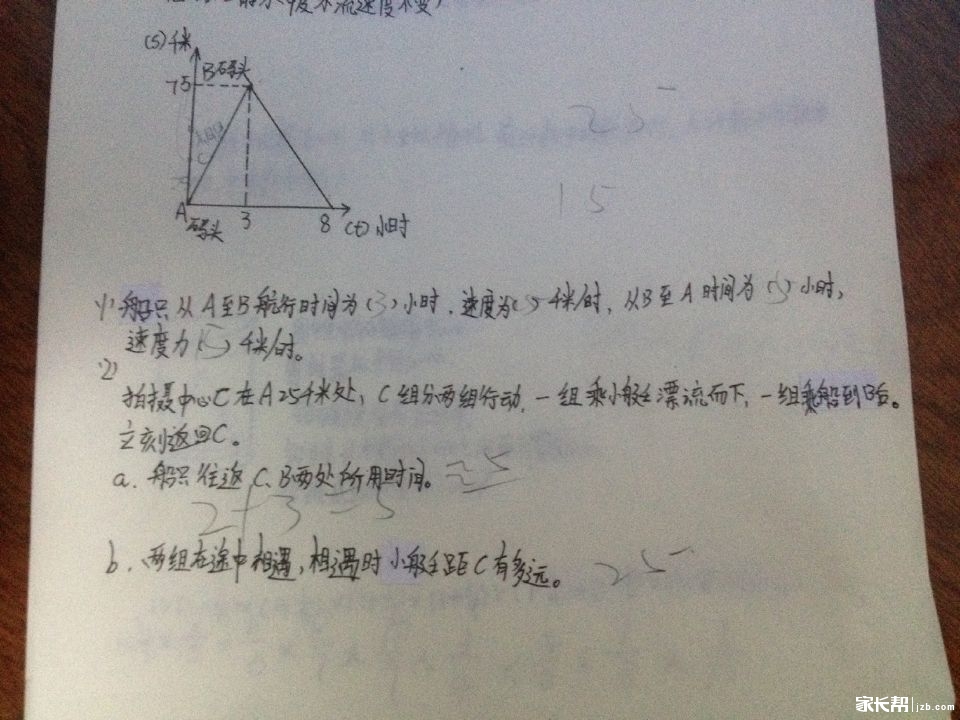 水流速度不变)
(S)千米
B码头
75
25
C
15
A
码头
3
8
(t)小时
(1) 船只从A至B航行时间为(3)小时,速度为( )千米/时,从B至A时间为(5)小时,
速度为(15)千米/时。
(2)
拍摄中心C在A25千米处,C组分两组行动,一组乘小艇漂流而下,一组乘船到B后。
立刻返回C。
a. 船只往返C、B两处所用时间。
2+3=5
b. 两组在途中相遇,相遇时小艇距C有多远。 25
家长帮 jzb.com